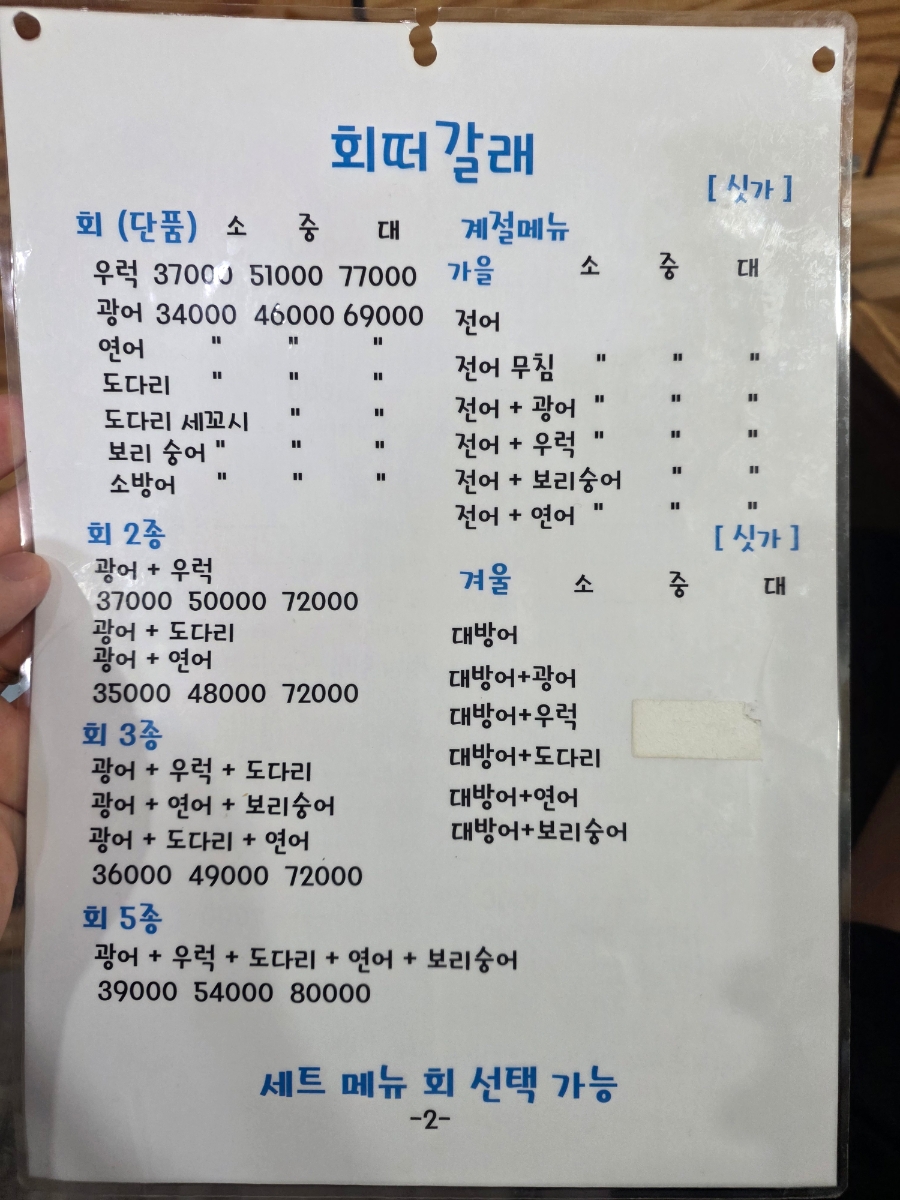 회떠갈래
회 (단품) 소 중 대
우럭 37000 51000 77000
광어 34000 46000 69000
연어 " " "
도다리 " " "
도다리 세꼬시 " "
보리 숭어 " " "
소방어 " " "
회 2종
광어 + 우럭
37000 50000 72000
광어 + 도다리
광어 + 연어
35000 48000 72000
회 3종
광어 + 우럭 + 도다리
광어 + 연어 + 보리숭어
광어 + 도다리 + 연어
36000 49000 72000
회 5종
광어 + 우럭 + 도다리 + 연어 + 보리숭어
39000 54000 80000
[ 싯가 ]
계절메뉴
가을 소 중 대
전어
전어 무침 " " "
전어 + 광어 " " "
전어 + 우럭 " " "
전어 + 보리숭어 " "
전어 + 연어 " " "
[ 싯가 ]
겨울 소 중 대
대방어
대방어+광어
대방어+우럭
대방어+도다리
대방어+연어
대방어+보리숭어
세트 메뉴 회 선택 가능
-2-